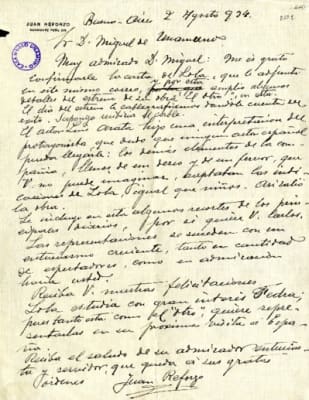 JUAN REFORZO
Buenos-Aires 2 Agosto 934.
Sr D. Miguel de Unamuno
Muy admirado D. Miguel: Me es grato
confirmarle la carta de Lola, que le adjunto
en este mismo correo, y por este amplio algunos
detalles del estreno de su obra El otro, en esta.
El día del estreno le cablegrafiamos dandole cuenta del
exito. Supongo recibiría el cable.
El actor Arata hizo una interpretacion del
protagonista que dudo que ningun actor español
pueda llegarla; los demás elementos de la com-
pañia, llenos de un deseo y de un fervor, que
V. no puede imaginar, aceptaban las indi-
caciones de Lola, igual que niños. Asi salió
la obra.
Le incluyo en esta algunos recortes de los prin-
cipales diarios, por si quiere V. leerlos.
Las representaciones se suceden con un
entusiasmo creciente, tanto en cantidad
de espectadores, como en admiracion
hacia usted.
Reciba V. nuestras felicitaciones.
Lola estudia con gran interés Fedra;
pues tanto esta como el "otro", quiere repre-
sentarlas en su proxima visita a Espa-
ña.
Reciba el saludo de su admirador entusias-
ta y servidor, que queda a sus gratas
ordenes
Juan Reforzo